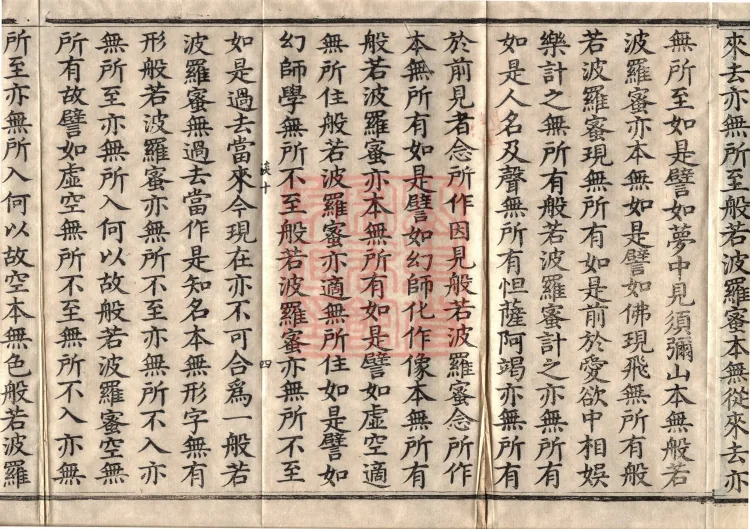 來去亦無所至般若波羅蜜本無從來去亦
無所至如是譬如夢中見須彌山本無般若
波羅蜜亦本無如是譬如佛現飛無所有般
若波羅蜜現無所有如是前於愛欲中相娛
樂計之無所有般若波羅蜜計之亦無所有
如是人名及聲無所有怛薩阿竭亦無所有
於前見者念所作因見般若波羅蜜念所作
本無所有如是譬如幻師化作像本無所有
般若波羅蜜亦本無所有如是譬如虛空適
無所住般若波羅蜜亦適無所住如是譬如
幻師學無所不至般若波羅蜜亦無所不至
十 四
如是過去當來今現在亦不可合爲一般若
波羅蜜無過去當作是知名本無形字無有
形般若波羅蜜亦無所不至亦無所不入亦
無所至亦無所入何以故般若波羅蜜空無
所有故譬如虛空無所不至無所不入亦無
所至亦無所入何以故空本無色般若波羅